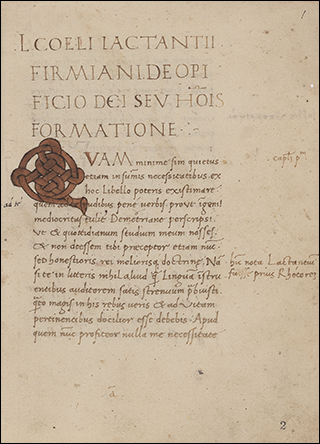 L. COELI LACTANTII
FIRMIANI. DE OPI
FICIO DEI SEV HOĪS
FORMATIONE
QVAM minime sim quietus
etiam in sumis necessitatibus. ex
hoc Libello poteris existimare
quem ad te rudibus pene verbis prout ingenij
mediocritas tulit Demetriane perscripsi.
Vt & quotidianum studium meum nosses.
& non deessem tibi praeceptor etiam nūc
sed honestioris rei meliorisq doctrine. Nā
si te in litteris nihil aliud Linguam īstru
entibus auditorem satis strenuum p̄buisti.
magis in his rebus veris & ad Vitam
pertinentibus docilior esse debebis. Apud
quem nūc profiteor nulla me necessitate
capm̄ pm̄
hic nota Lactantium
fuisse prius Rhetorem
1
2